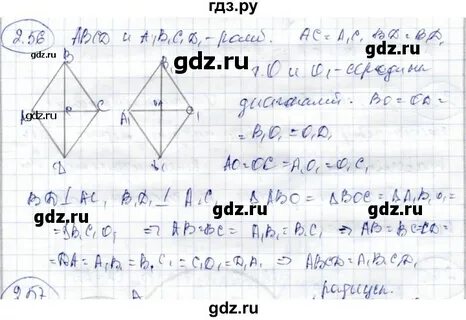 гдз.ру
2.56 ABCD и A₁B₁C₁D₁ - ромб. AC = A₁C₁ BD = B₁D₁
т. O и O₁ - середина
диагоналей. BO = OD =
= B₁O₁ = O₁D₁
AO = OC = A₁O₁ = O₁C₁
BD ⊥ AC, B₁D₁ ⊥ A₁C₁ ΔABO = ΔBOC = ΔA₁B₁O₁ =
= ΔB₁C₁O₁ ⇒ AB = BC = A₁B₁ = B₁C₁ ⇒ AB = BC = CD =
= DA = A₁B₁ = B₁C₁ = C₁D₁ = D₁A₁ ⇒ ABCD = A₁B₁C₁D₁
2.57
B
A
O
C
D
A₁
gdz.ru
gdz.ru
gdz.ru
gdz.ru
gdz.ru
gdz.ru
gdz.ru
gdz.ru